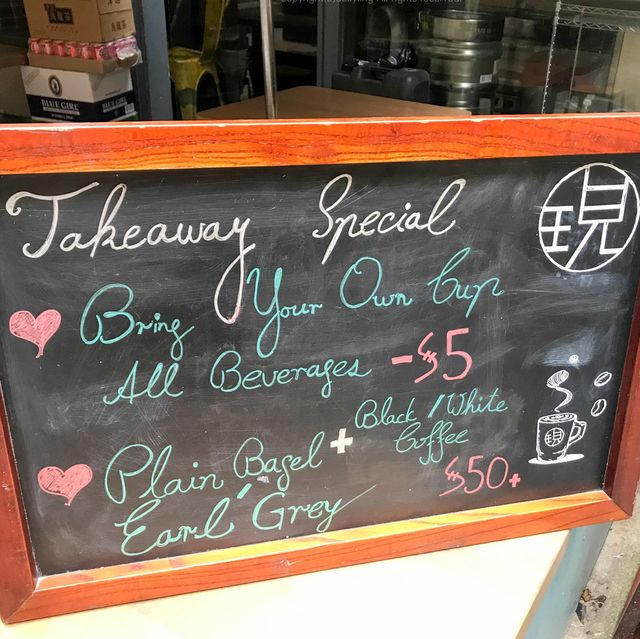 Takeaway Special
現
Bring Your Own Cup
All Beverages -$5
Plain Bagel + Black / White Coffee
Earl Grey
$50+
現
BLUE GIRL